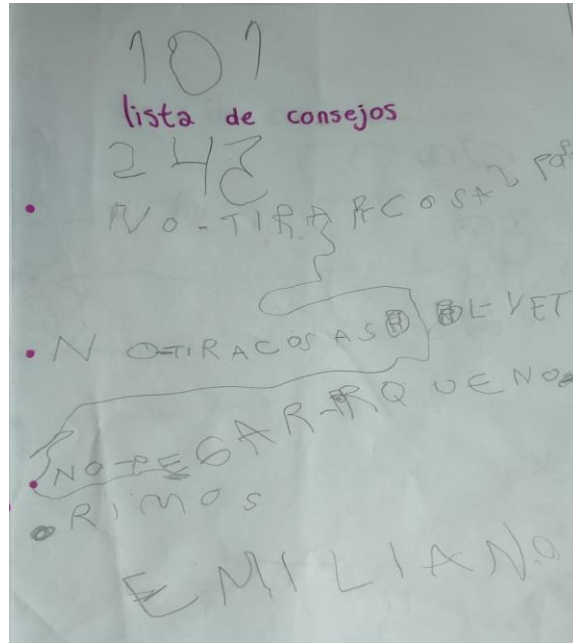 101
lista de consejos
243
• NO-TIRAR COSAS POR
• NO-TIRACOSAS EL VET
• NO-PEGAR-PRQUENO
• RIMOS
EMILIANO